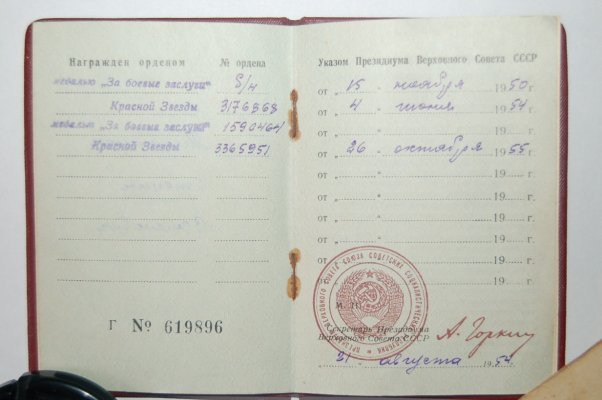 Награжден орденом № ордена
медалью „За боевые заслуги“ б/н
Красной Звезды 3176868
медалью „За боевые заслуги“ 1590464
Красной Звезды 3365951
Г № 619896
Указом Президиума Верховного Совета СССР
от „15“ ноября 1950 г.
от „4“ июня 1954 г.
от „ “ 19 г.
от „26“ октября 1955 г.
от „ “ 19 г.
от „ “ 19 г.
от „ “ 19 г.
от „ “ 19 г.
от „ “ 19 г.
от „ “ 19 г.
М. П.
Секретарь Президиума
Верховного Совета СССР А. Горкин
„21“ августа 1954 г.